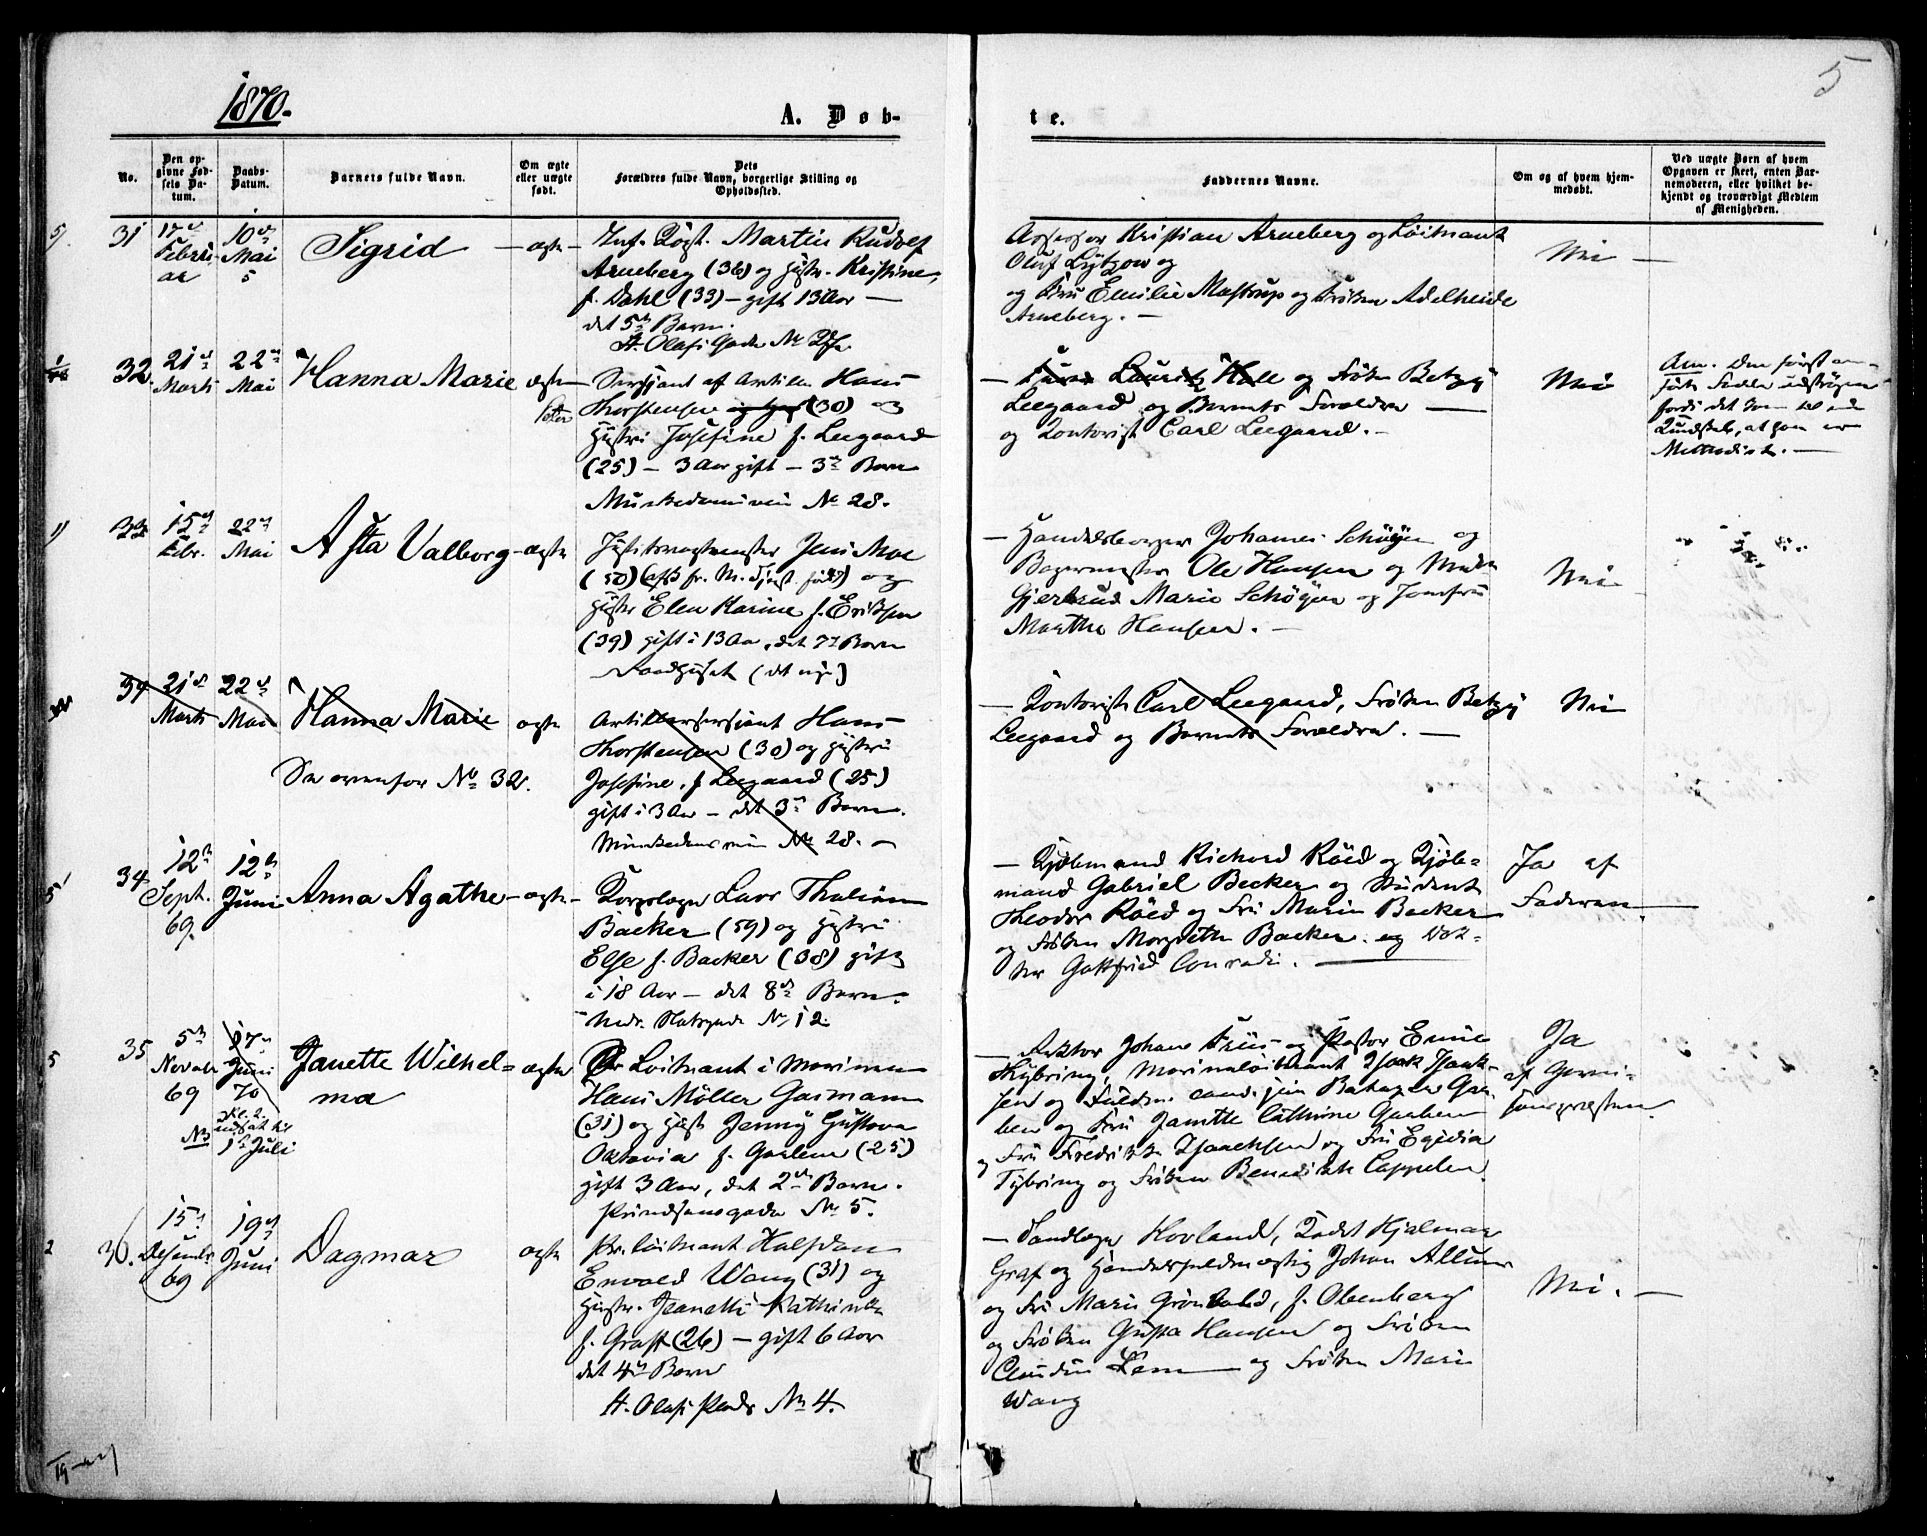 1870.
5
A. Døb-
te.
No.
Den op-
givne Fød-
sels Da-
tum.
Daabs-
Datum.
Barnets fulde Navn.
Om ægte
eller uægte
født.
Dets
Forældres fulde Navn, borgerlige Stilling og
Opholdssted.
Faddernes Navne.
Om og af hvem hjem-
medøbt.
Ved uægte Børn af hvem
Opgaven er skeet, enten Bar-
nemoderen, eller hvilket be-
kjendt og troværdigt Medlem
af Menigheden.
31
17de
Febru-
ar
10de
Mai
Sigrid
ægte
Martin Rudolf
Arneberg (36) og Hustr. Kristine,
f. Dahl (33) – gift 13 Aar –
det 5te Barn.
St. Olafs Gade No
Assessor Kristian Arneberg og Løitnant
Oluf Lützow og
og Fru Emilie Mastrup og Frøken Adelheide
Arneberg. –
Nei –
32.
21de
Marts
22de
Mai
Hanna Marie
ægte
Sersjant af Artill. Hans
Thorstensen og Hust (30) og
Hustru Josefine f. Leegaard
(25) – 3 Aar gift – 3die Barn
Munkedamsveien No 28.
Lauritz Hall og Frøken Betzy
Leegaard og Barnets Forældre –
og Kontorist Carl Leegaard. –
Nei
Anm. Den først an-
førte Fadder udstrøgen
fordi det kom til
Kundskab, at han er
Methodist. –
33
15de
Febr.
22de
Mai
Asta Valborg
ægte
Jens Moe
(50) og
Hustru Elen Karine f. Eriksen
(39) gift i 13 Aar, det 7de Barn
Raadhuset (det nye)
– Handelsborger Johannes Schøyen og
Bagermester Ole Hansen og Madm
Gjertrud Marie Schøyen og Jomfru
Marthe Hansen. –
Nei
34
21de
Marts
22de
Mai
Hanna Marie
ægte
Se ovenfor No 32.
Artillerisersjant Hans
Thorstensen (30) og Hustru
Josefine, f Leegaard (25)
gift i 3 Aar – det 3die Barn.
Munkedamsveien No 28. –
– Kontorist Carl Leegaard, Frøken Betzy
Leegaard og Barnets Forældre. –
Nei
34
12te
Sept.
69.
12te
Juni
Anna Agathe
ægte
Korpslæge Lars Thulin
Backer (59) og Hustru
Else f. Backer (38) gift
i 18 Aar – det 8de Barn.
Nedr. Slotsgade No 12.
– Kjøbmand Richard Röed og Kjøb-
mand Gabriel Backer og Student
Theodor Röed og Fru Marie Backer
og Frøken Margrethe Backer. og Dok-
tor Gottfried Conradi. –
Ja af
Faderen.
35
5te
Novembr
69
17de
Juni
70
Kl. 2.
udsat til
1ste Juli
Janette Wilhel-
ma
ægte
Pr Løitnant i Marinen
Hans Möller Gasmann
(31) og Hust Jenny Gustava
Oktavia f. Garben (25)
gift 3 Aar, det 2det Barn.
Prindsensgade No 5.
– Rektor Johan Friis og Pastor Emil
Tybring, Marineløitnant Isaak Isaak-
sen og Fuldm. cand. juris Garben
ben og Fru Janette Cathrine Garben
og Fru Fredrikke Isaachsen og Fru Egidia
Tybring og Frøken Benedikte Cappelen.
Ja
af Garni-
sonspræsten.
36.
15de
Desembr
69
19de
Juni
Dagmar
ægte
Pr. Løitnant Halfdan
Envald Wang (31) og
Hustr. Jeanette Kathinka
f. Graff (26) – gift 6 Aar
det 4de Barn
St. Olafs Plads No 4.
– Tandlæge Hovland, Kadet Hjalmar
Graf og Handelsfuldmægtig Johan Allum
og Fru Marie Grönvold, f. Obenberg
og Frøken Gusta Hansen og Frøken
Claudine Lem – og Frøken Marie
Wang
Nei. –